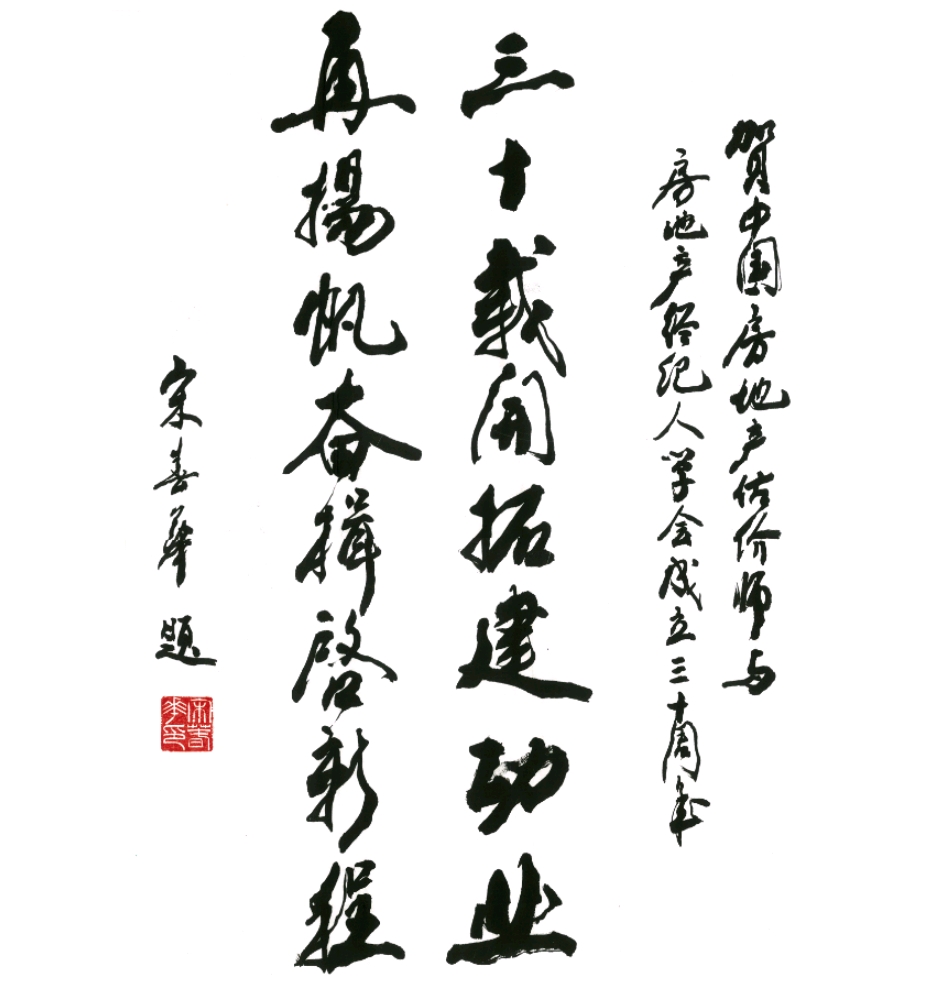 贺中国房地产估价师与
房地产经纪人学会成立三十周年
三十载开拓建功业
再揚帆奋楫启新程
宋春华 题
宋春华印